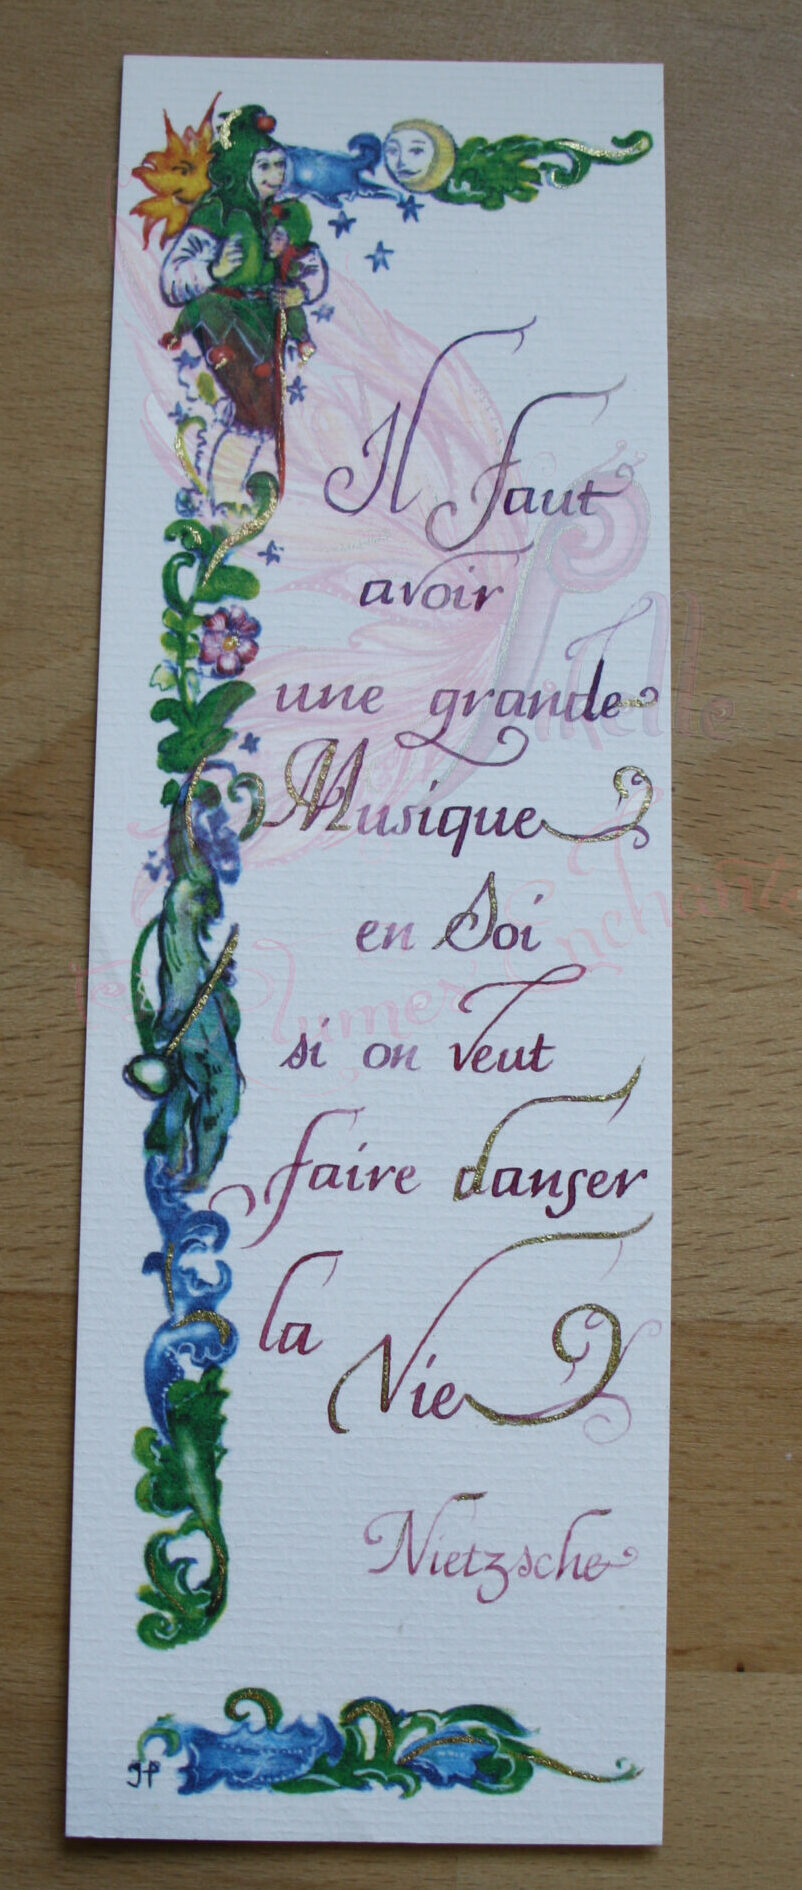 Il faut
avoir
une grande
Musique
en Soi
si on veut
faire danser
la Vie
Nietzsche
JP
Plumes Enchantées